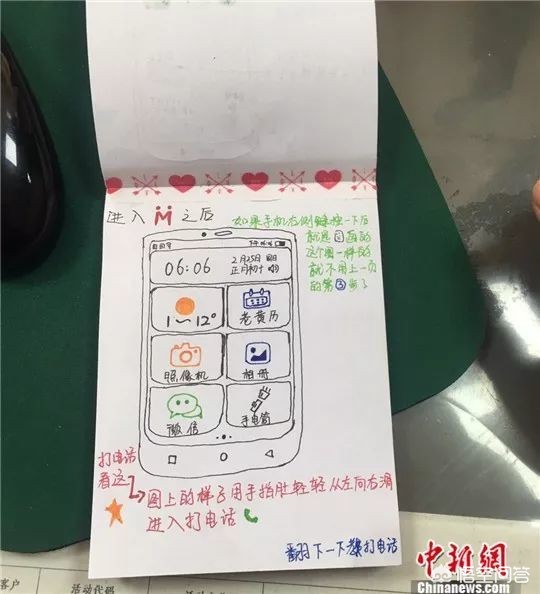 进入
之后
如果手机右侧键按一下后
就是
这个图一样的
就不用上一页
的第③步了
中国移动
下午 06:06
06:06
2月25日 周日
正月初十
1~12°
老黄历
照像机
相册
微信
手电筒
打电话
看这
图上的样子用手指肚轻轻从左向右滑
进入打电话
翻下一下教打电话
中新網
Chinanews.com
悟空问答
客户
活动代码
活动名称